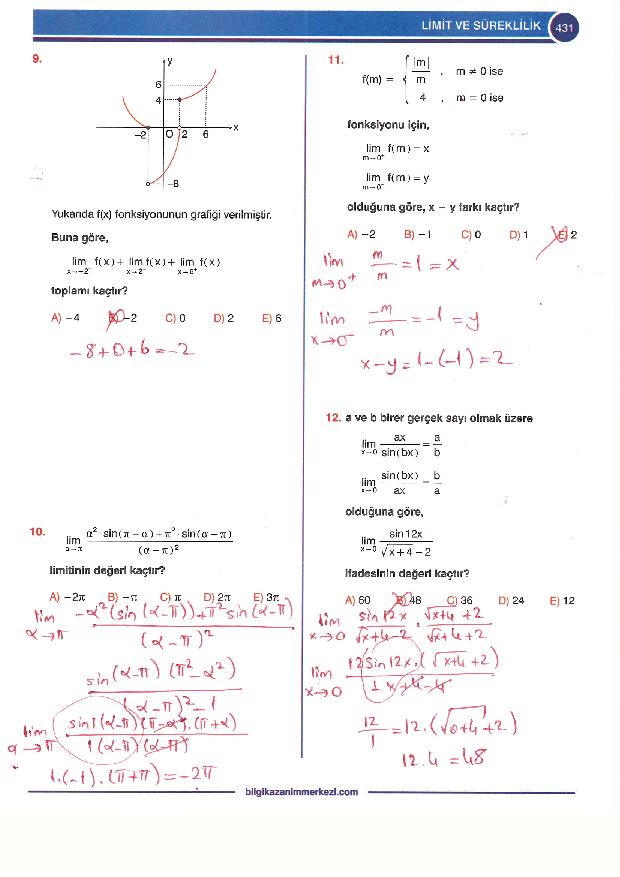 LİMİT VE SÜREKLİLİK 431
9.
y
6
4
-2 0 2 6 x
-8
Yukarıda f(x) fonksiyonunun grafiği verilmiştir.
Buna göre,
lim f(x) + lim f(x) + lim f(x)
x→-2⁻ x→2⁻ x→6⁺
toplamı kaçtır?
A) -4 B) -2 C) 0 D) 2 E) 6
-8+0+6=-2
10.
lim α²·sin(π-α)+π²·sin(α-π)
α→π (α-π)²
limitinin değeri kaçtır?
A) -2π B) -π C) π D) 2π E) 3π
lim -α²(sin(α-π))+π² sin(α-π)
α→π (α-π)²
sin(α-π) (π²-α²)
(α-π)²-1
lim sin1(α-π)(π-α).(π+α)
α→π 1(α-π)(α-π)
1.(-1).(π+π)=-2π
11.
f(m) = { |m| / m , m ≠ 0 ise
4 , m = 0 ise
fonksiyonu için,
lim f(m) = x
m→0⁺
lim f(m) = y
m→0⁻
olduğuna göre, x - y farkı kaçtır?
A) -2 B) -1 C) 0 D) 1 E) 2
lim m/m = 1 = x
m→0⁺
lim -m/m = -1 = y
x→0⁻
x-y=1-(-1)=2
12. a ve b birer gerçek sayı olmak üzere
lim ax / sin(bx) = a/b
x→0
lim sin(bx) / ax = b/a
x→0
olduğuna göre,
lim sin12x / √x+4 - 2
x→0
ifadesinin değeri kaçtır?
A) 60 B) 48 C) 36 D) 24 E) 12
lim sin 12x / √x+4-2 . √x+4+2 / √x+4+2
x→0
lim 12 Sin 12x.(√x+4+2) / 1 x+4-4
x→0
12/1 = 12.(√0+4+2)
12.4 = 48
bilgikazanimmerkezi.com